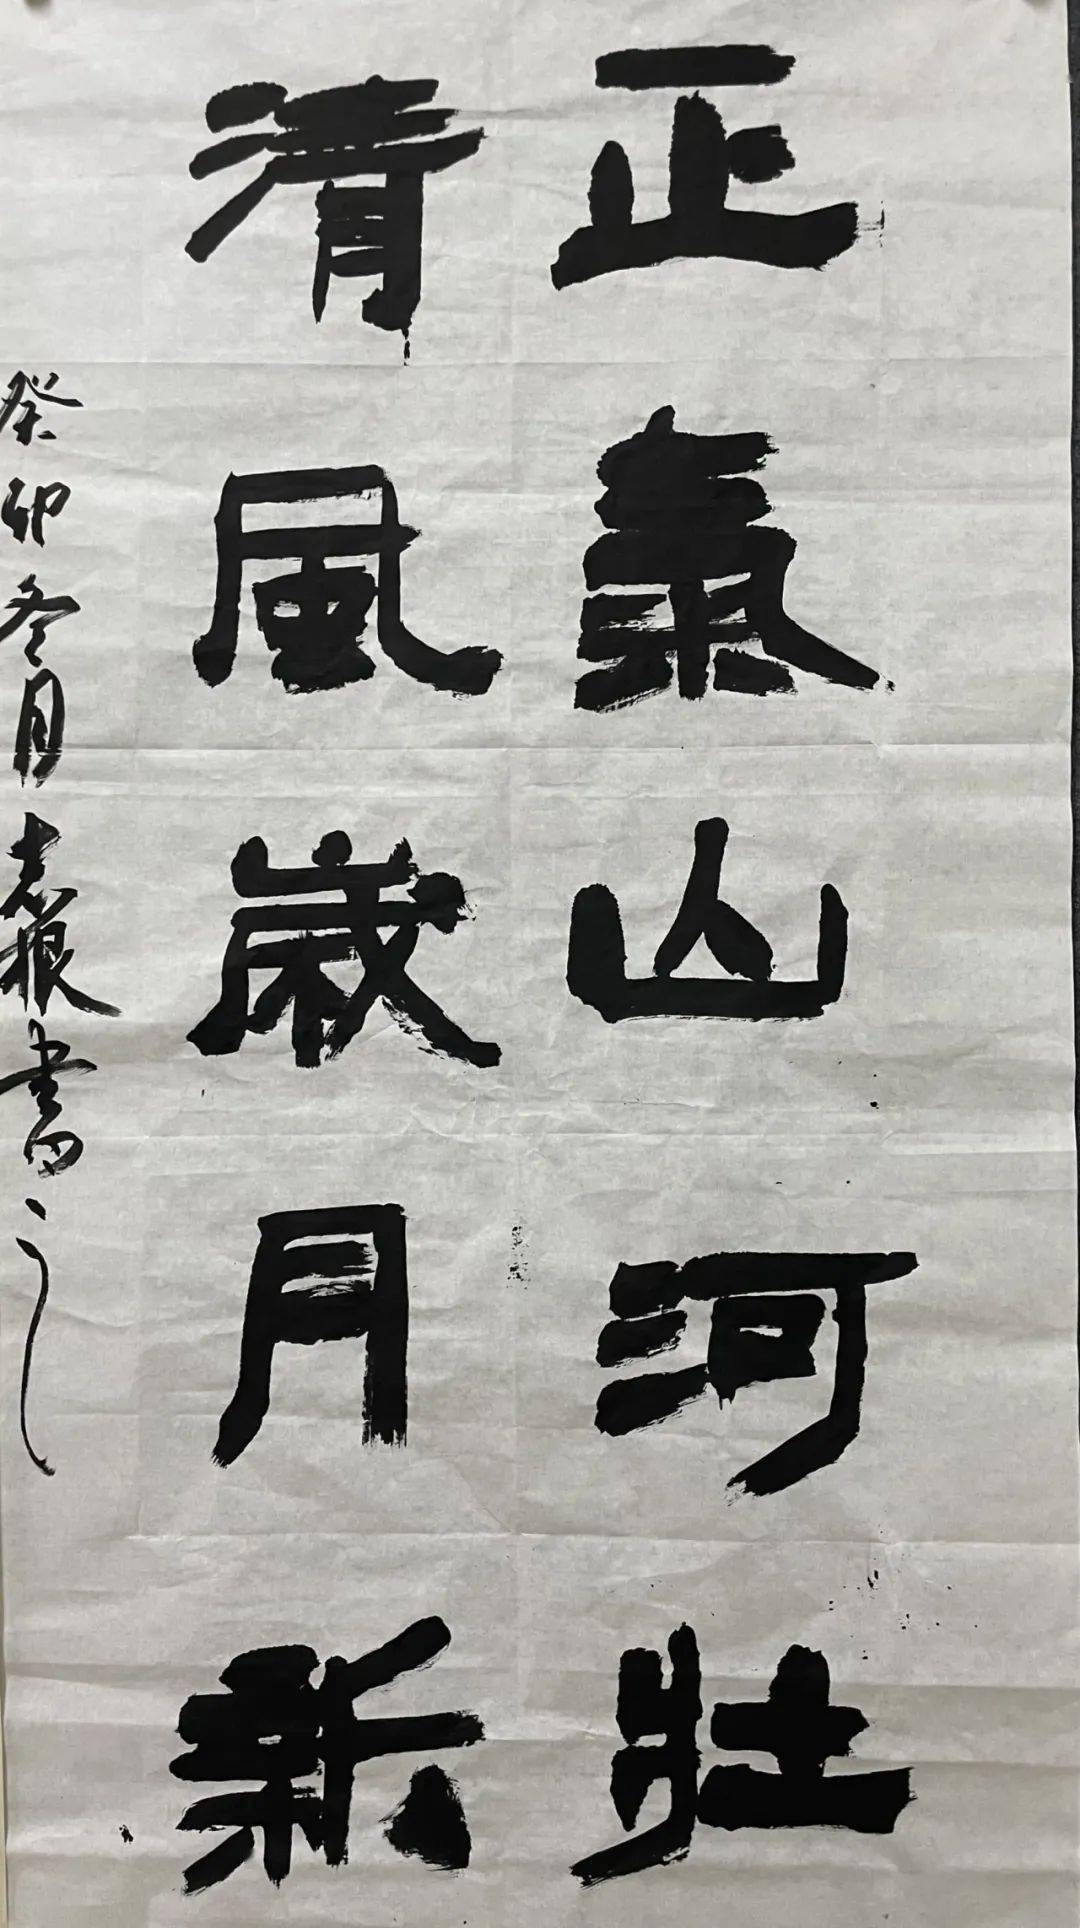 正氣山河壯
清風歲月新
癸卯冬月志根書之